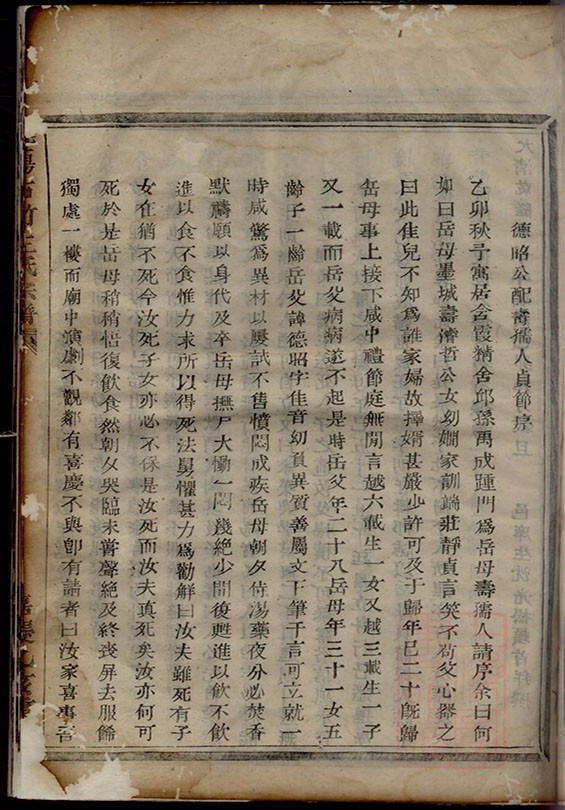 德略公配壽孺人貞節序
乙卯秋予寓居舍霞精舍邱孫萬成踵門為岳母壽孺人請序余曰何
如曰岳母墨城壽濬哲公女幼嫻家訓端莊靜貞言笑不苟父心器之
曰此佳兒不知為誰家婦故擇婿甚嚴少許可及于歸年已二十既歸
岳母事上接下咸中禮節庭無閒言越六載生一女又越三載生一子
又一載而岳父病病遂不起是時岳父年二十八岳母年三十一女五
齡子一齡岳父諱德昭字佳音幼負異質善屬文下筆千言可立就一
時咸驚為異材以屢試不售憤悶成疾岳母朝夕侍湯藥夜分必焚香
默禱願以身代及卒岳母撫尸大慟一悶幾絕少間復甦進以飲不飲
進以食不食惟力求所以得死法舅懼甚力為勸解曰汝夫雖死有子
女在猶不死今汝死子女亦必不保是汝死而汝夫真死矣汝亦何可
死於是岳母稍稍悟復飲食然朝夕哭臨未嘗聲絕及終喪屏去服飾
獨處一樓而廟中演劇不觀鄰有喜慶不與卽有請者曰汝家喜事吾